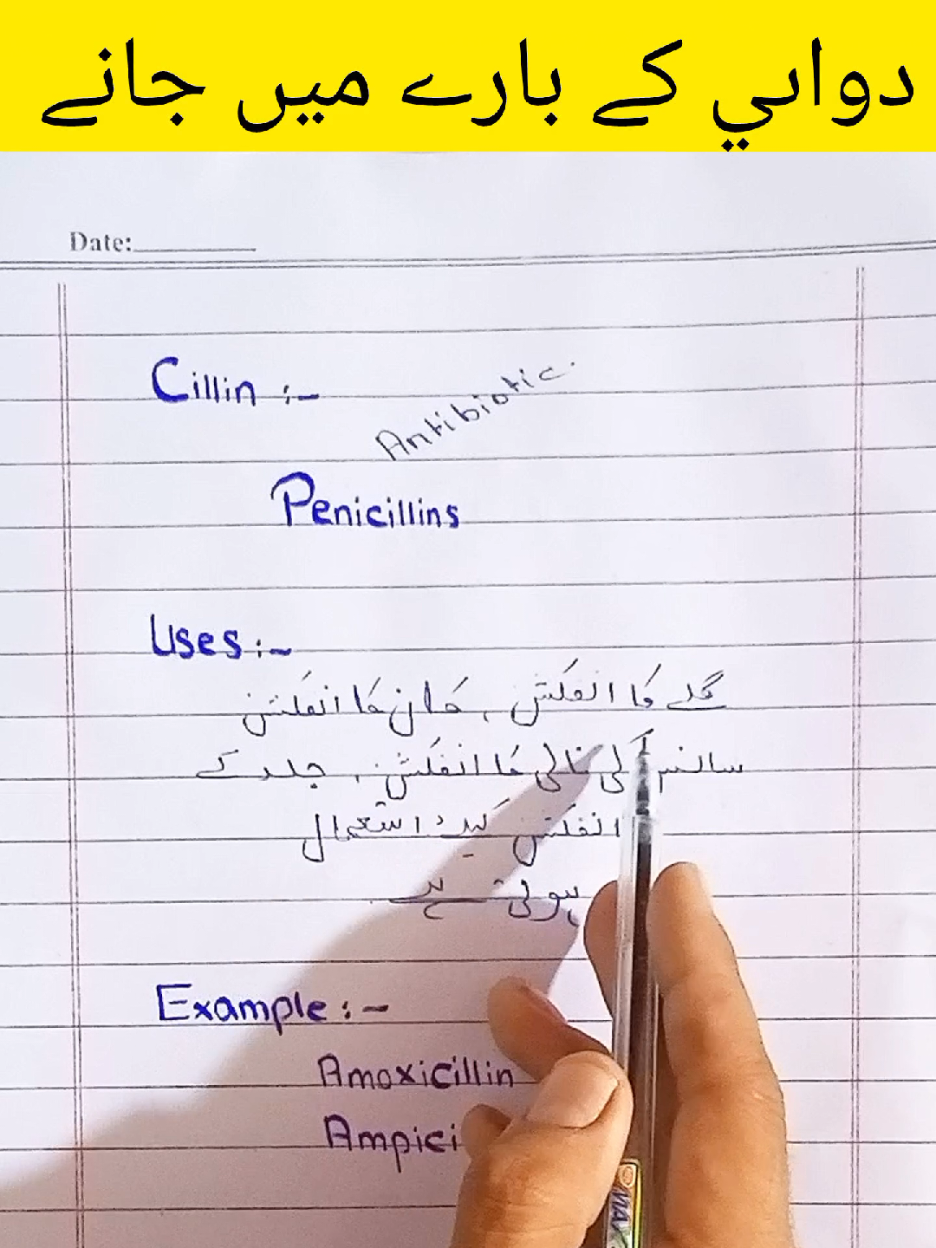 دوایي کے بارے میں جانے
Date:
Cillin :-
Antibiotic.
Penicillins
Uses :-
گلے کا انفکشن ، کان کا انفکشن
سانس کی نالی کا انفکشن ، جلد کے
انفکشن کیلۓ استعمال
ہوتی ہے
Example :-
Amoxicillin
Ampici
MAX